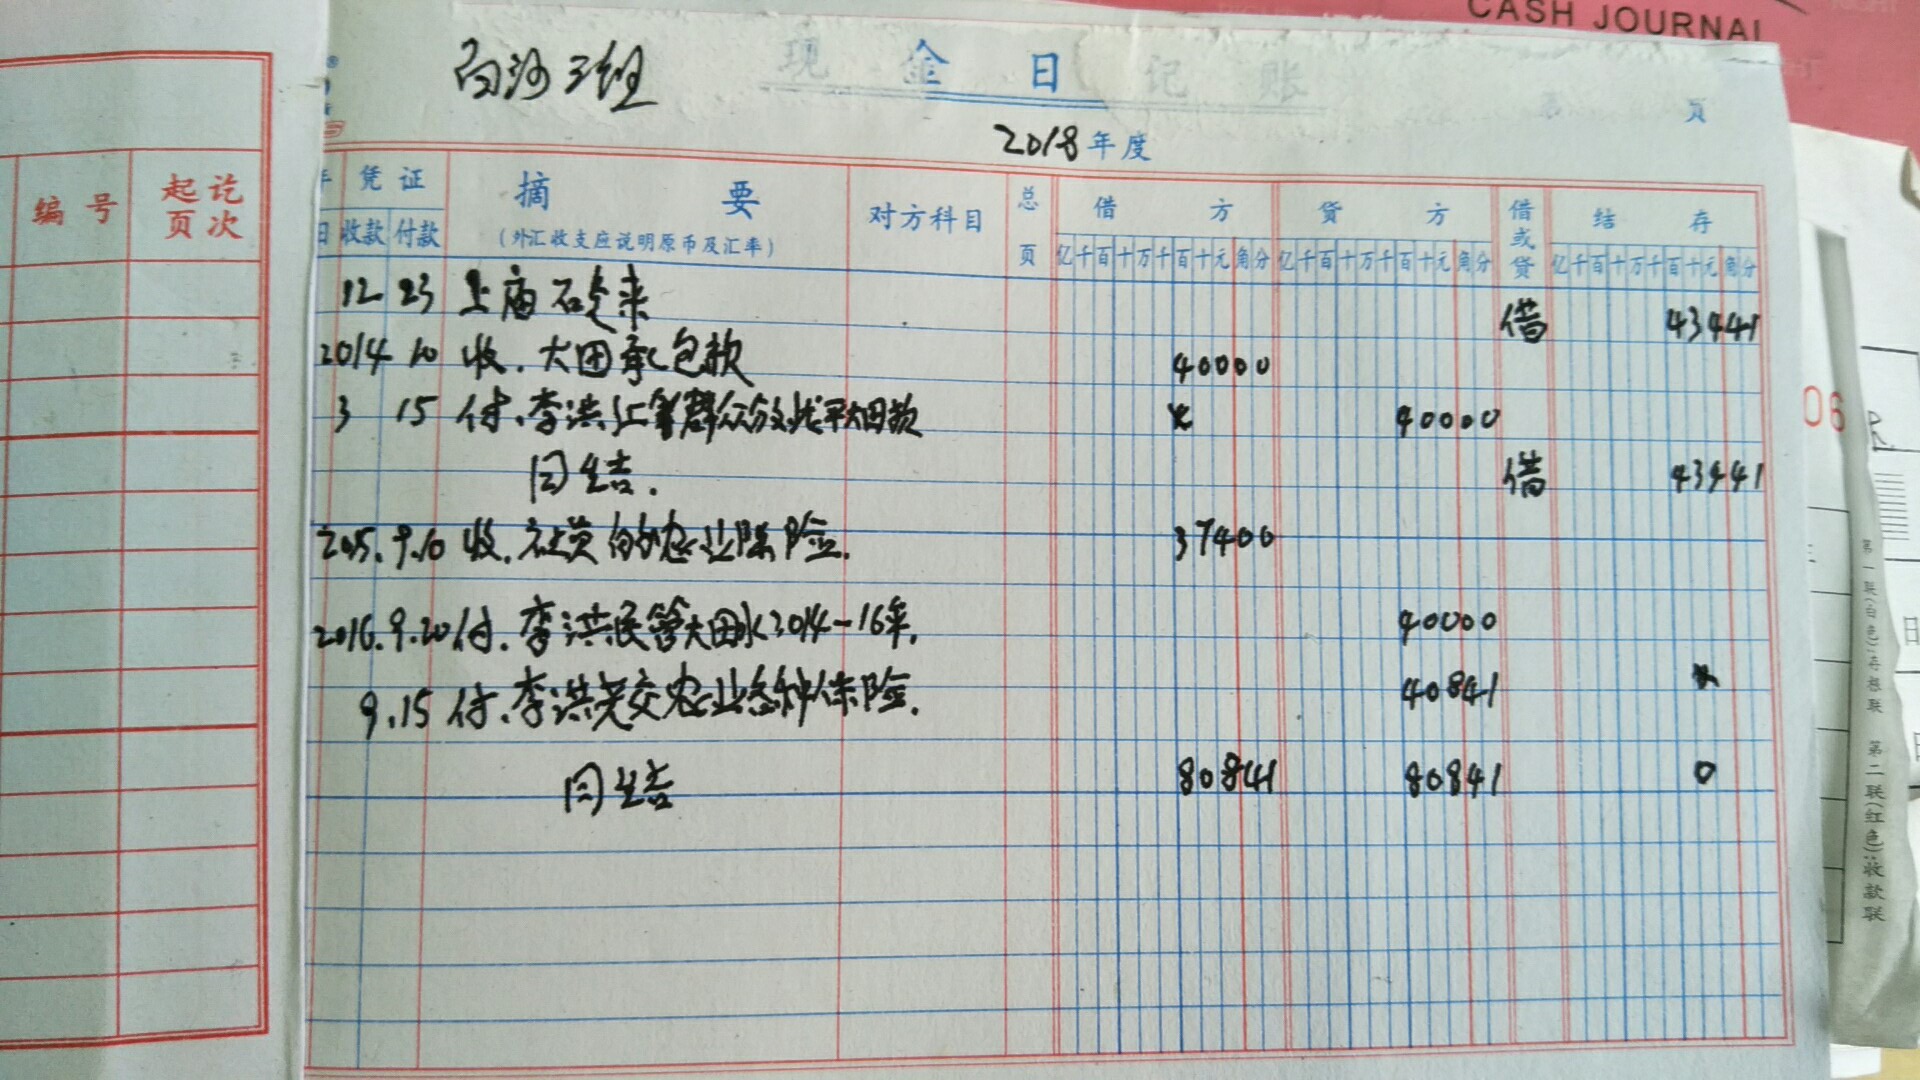 CASH JOURNAL
白沙三组
现 金 日 记 账
页
2018年度
编号 起讫页次
凭证 摘要 对方科目 总页 借方 贷方 借或贷 结存
日 收款 付款 (外汇收支应说明原币及汇率) 亿千百十万千百十元角分 亿千百十万千百十元角分 亿千百十万千百十元角分
12 23 上庙 来 借 43441
2014 10 收.大田承包款 40000
3 15 付.李洪 群众 大田款 40000
结. 借 43441
2015.9.10 收.社员 农业保险. 37400
2016.9.20 付.李洪民管大田水2014-16年. 40000
9.15 付.李洪 交农业 种保险. 40841
结 80841 80841 0
06
第一联(白色):存根联 第二联(红色):收款联